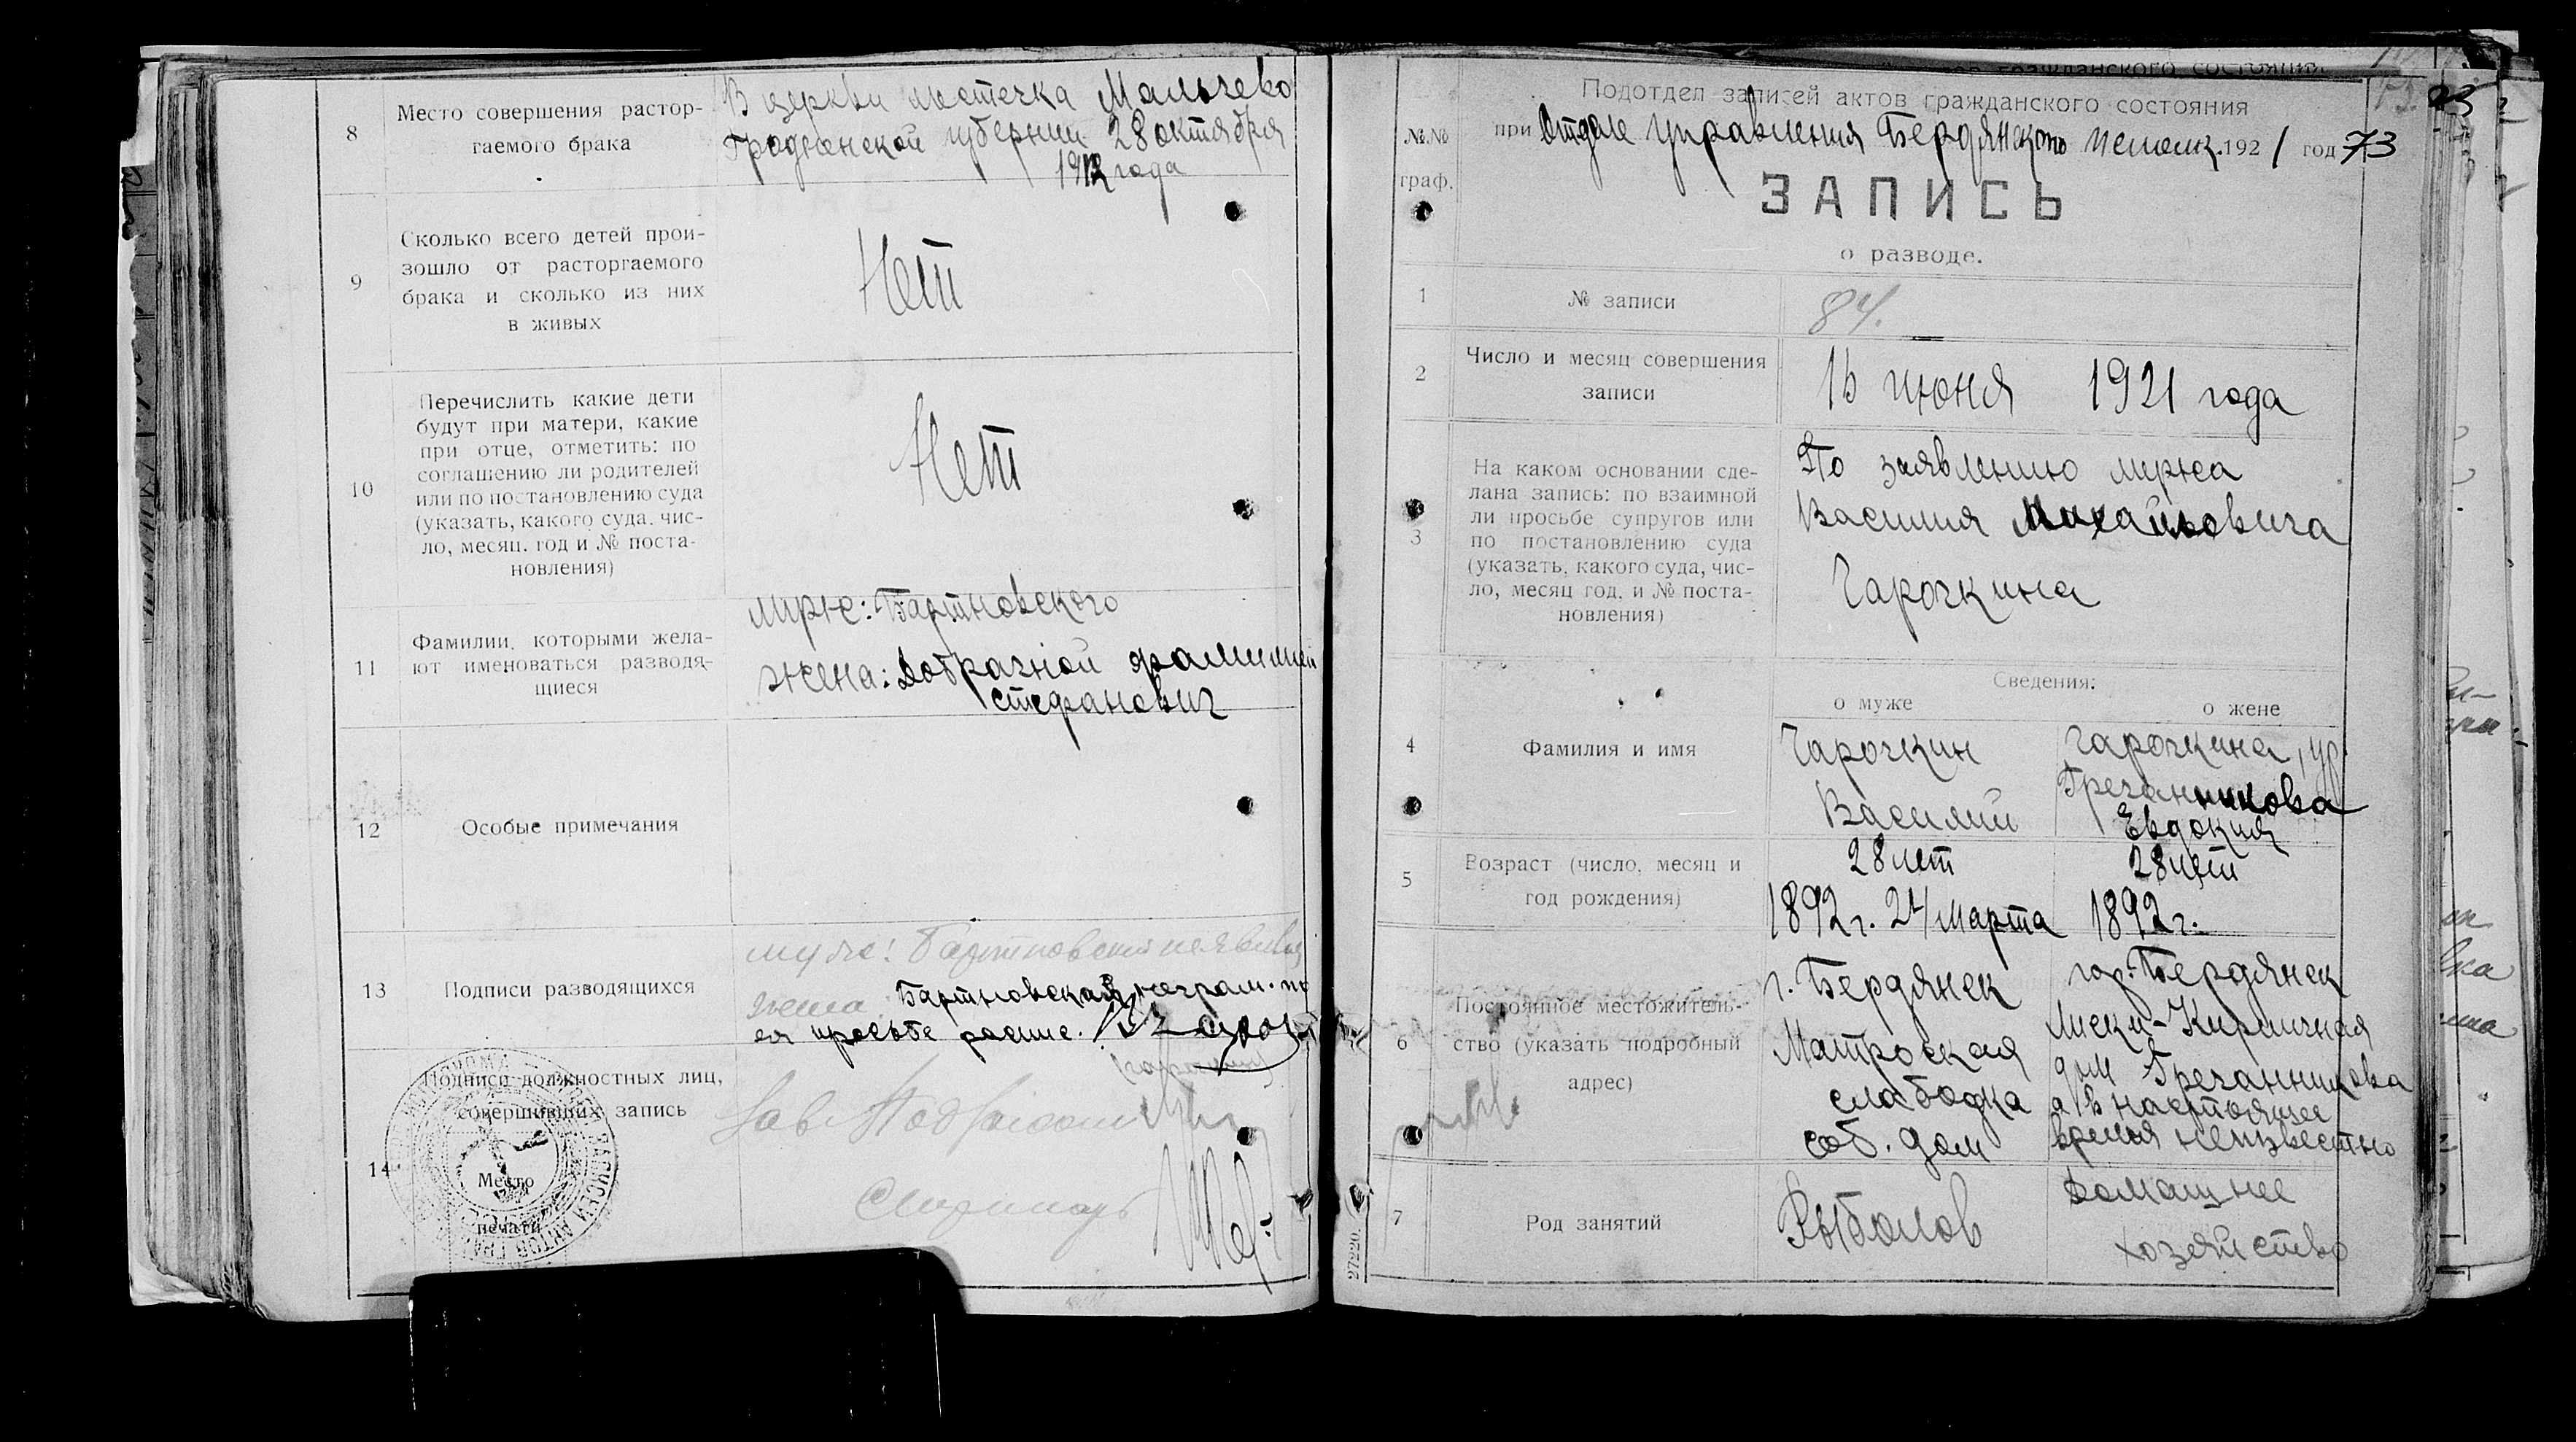 8
Место совершения растор-
гаемого брака
В церкви местечка Мальчево
Гродненской губернии 28 октября
1912 года
9
Сколько всего детей прои-
зошло от расторгаемого
брака и сколько из них
в живых
Нет
10
Перечислить какие дети
будут при матери, какие
при отце, отметить: по
соглашению ли родителей
или по постановлению суда
(указать, какого суда, чис-
ло, месяц. год и № поста-
новления)
Нет
11
Фамилии, которыми жела-
ют именоваться разводя-
щиеся
муж: Бартновского
жена: Добрачной фамилией
Стефанович
12
Особые примечания
13
Подписи разводящихся
муж: Бартновский
жена Бартновская, неграм. по
ея просьбе распис.
14
Подписи должностных лиц,
совершивших запись
Место
печати
Зав.
№№
граф.
Подотдел записей актов гражданского состояния
при Отделе Управления Бердянского исполк. 1921 год 73
ЗАПИСЬ
о разводе.
1
№ записи
84.
2
Число и месяц совершения
записи
16 июня 1921 года
3
На каком основании сде-
лана запись: по взаимной
ли просьбе супругов или
по постановлению суда
(указать, какого суда, чис-
ло, месяц год, и № поста-
новления)
По заявлению мужа
Василия Михайловича
Чарочкина
Сведения:
о муже
о жене
4
Фамилия и имя
Чарочкин
Василий
Чарочкина, ур.
Гречанникова
Евдокия
5
Возраст (число, месяц и
год рождения)
28 лет
1892 г. 24 Марта
28 лет
1892 г.
6
Постоянное местожитель-
ство (указать подробный
адрес)
г. Бердянск
Матросская
слабодка
соб. дом
гор. Бердянск
Лиски-Кирпичная
дом Гречанникова
а в настоящее
время неизвестно
7
Род занятий
Рыболов
Домашнее
хозяйство
27220.